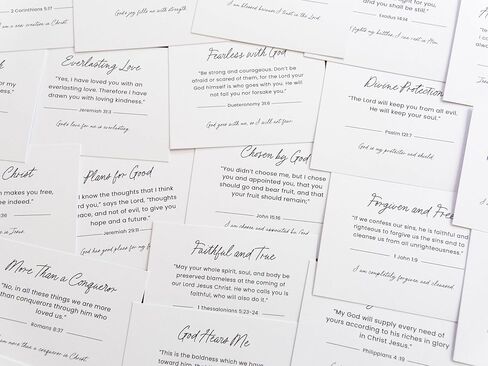 2 Corinthians 5:17
I am a new creation in Christ.
God's joy fills me with strength.
I am blessed because I trust in the Lord.
for you, and you shall be still."
Exodus 14:14
God fights my battles; I can rest in Him.
Everlasting Love
"Yes, I have loved you with an
everlasting love. Therefore I have
drawn you with loving kindness."
Jeremiah 31:3
God's love for me is everlasting.
Fearless with God
"Be strong and courageous. Don't be
afraid or scared of them, for the Lord your
God himself is who goes with you. He will
not fail you nor forsake you."
Dueteronomy 31:6
God goes with me, so I will not fear.
Divine Protection
"The Lord will keep you from all evil.
He will keep your soul."
Psalm 121:7
God is my protector and shield.
Christ
makes you free,
free indeed."
:36
in Jesus.
Plans for Good
I know the thoughts that I think
you," says the Lord, "thoughts
peace, and not of evil, to give you
hope and a future."
Jeremiah 29:11
God has good plans for my
Chosen by God
"You didn't choose me, but I chose
you and appointed you, that you
should go and bear fruit, and that
your fruit should remain;"
John 15:16
I am chosen and appointed by God.
Forgiven and Free
"If we confess our sins, he is faithful and
righteous to forgive us the sins and to
cleanse us from all unrighteousness."
1 John 1:9
I am completely forgiven and cleansed.
More Than a Conqueror
"No, in all these things we are more
than conquerors through him who
loved us."
Romans 8:37
I am more than a conqueror in Christ.
Faithful and True
"May your whole spirit, soul, and body be
preserved blameless at the coming of
our Lord Jesus Christ. He who calls you is
faithful, who will also do it."
1 Thessalonians 5:23-24
God Hears Me
"This is the boldness which we have
toward him,
"My God will supply every need of
yours according to his riches in glory
in Christ Jesus."
Philippians 4:19